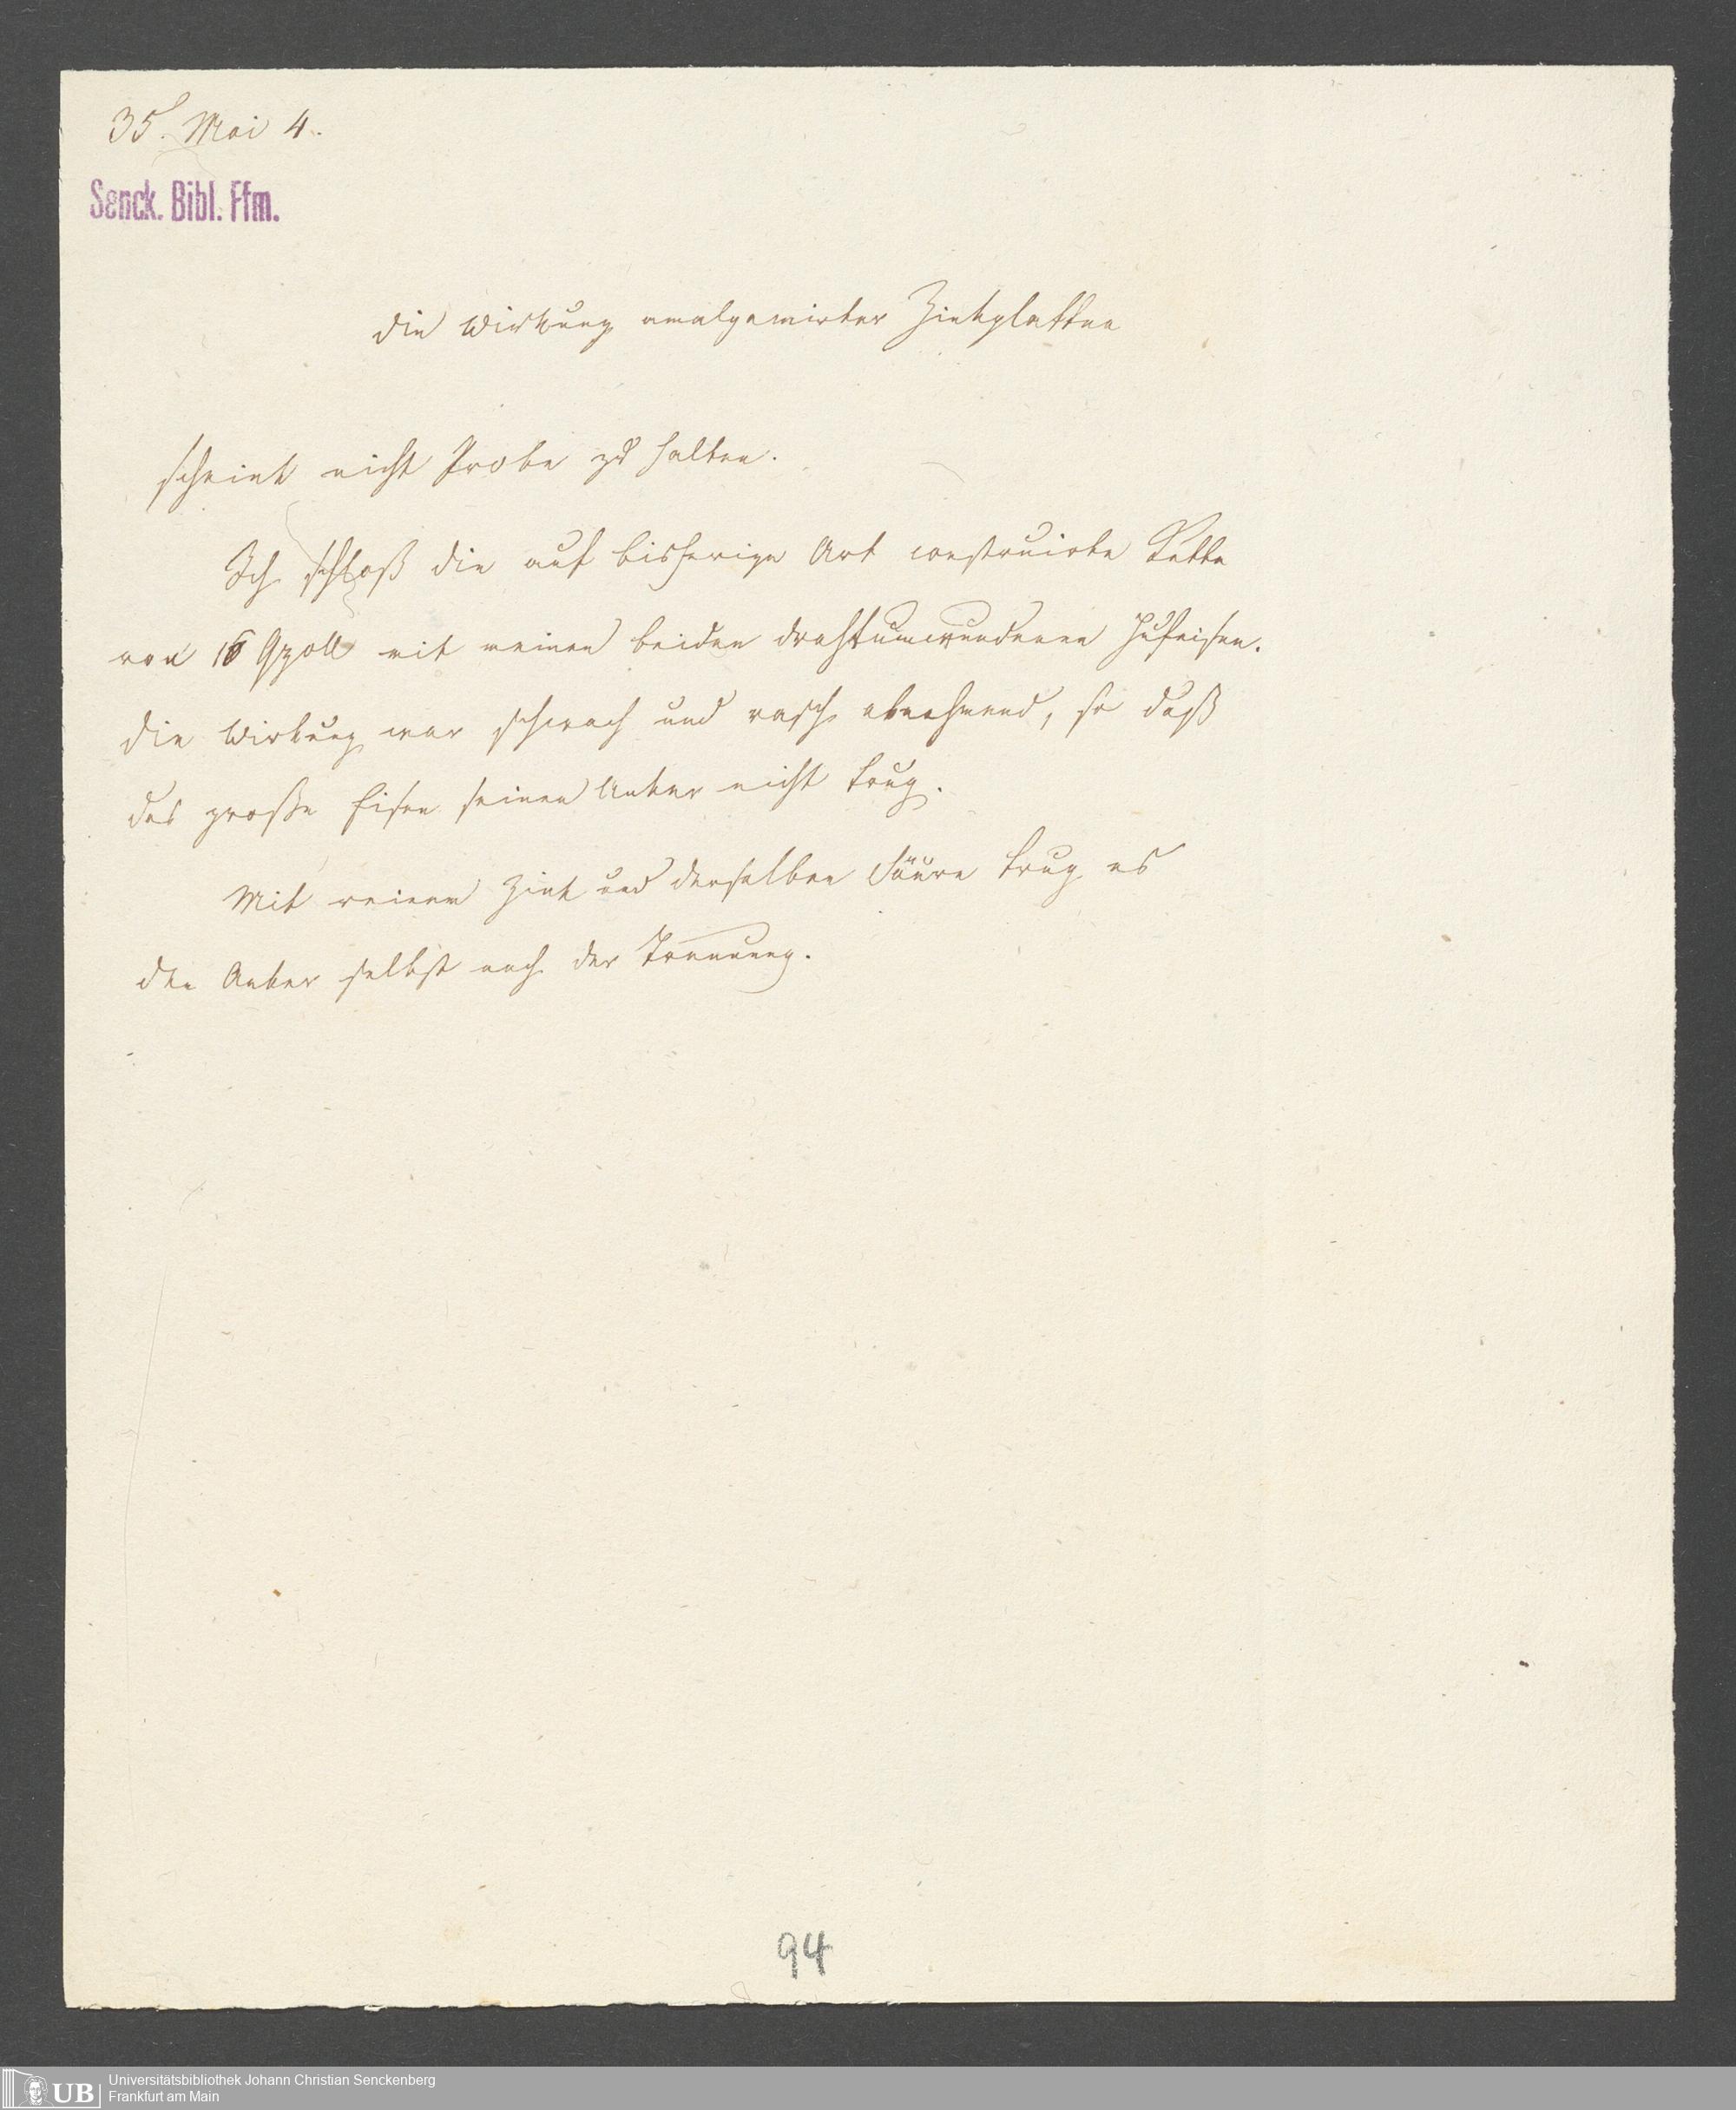 35. Mai 4.
Senck. Bibl. Ffm.
die Wirkung amalgamirter Zinkplatten
scheint nicht Probe zu halten.
Ich schloß die auf bisherige Art construirte Kette
von 16 Qzoll mit meinen beiden drahtumwundenen Hufeisen.
die Wirkung war schwach und rasch abnehmend, so daß
das große Eisen seinen Anker nicht trug.
Mit reinem Zink und derselben Säure trug es
den Anker selbst nach der Trennung.
94
UB
Universitätsbibliothek Johann Christian Senckenberg
Frankfurt am Main